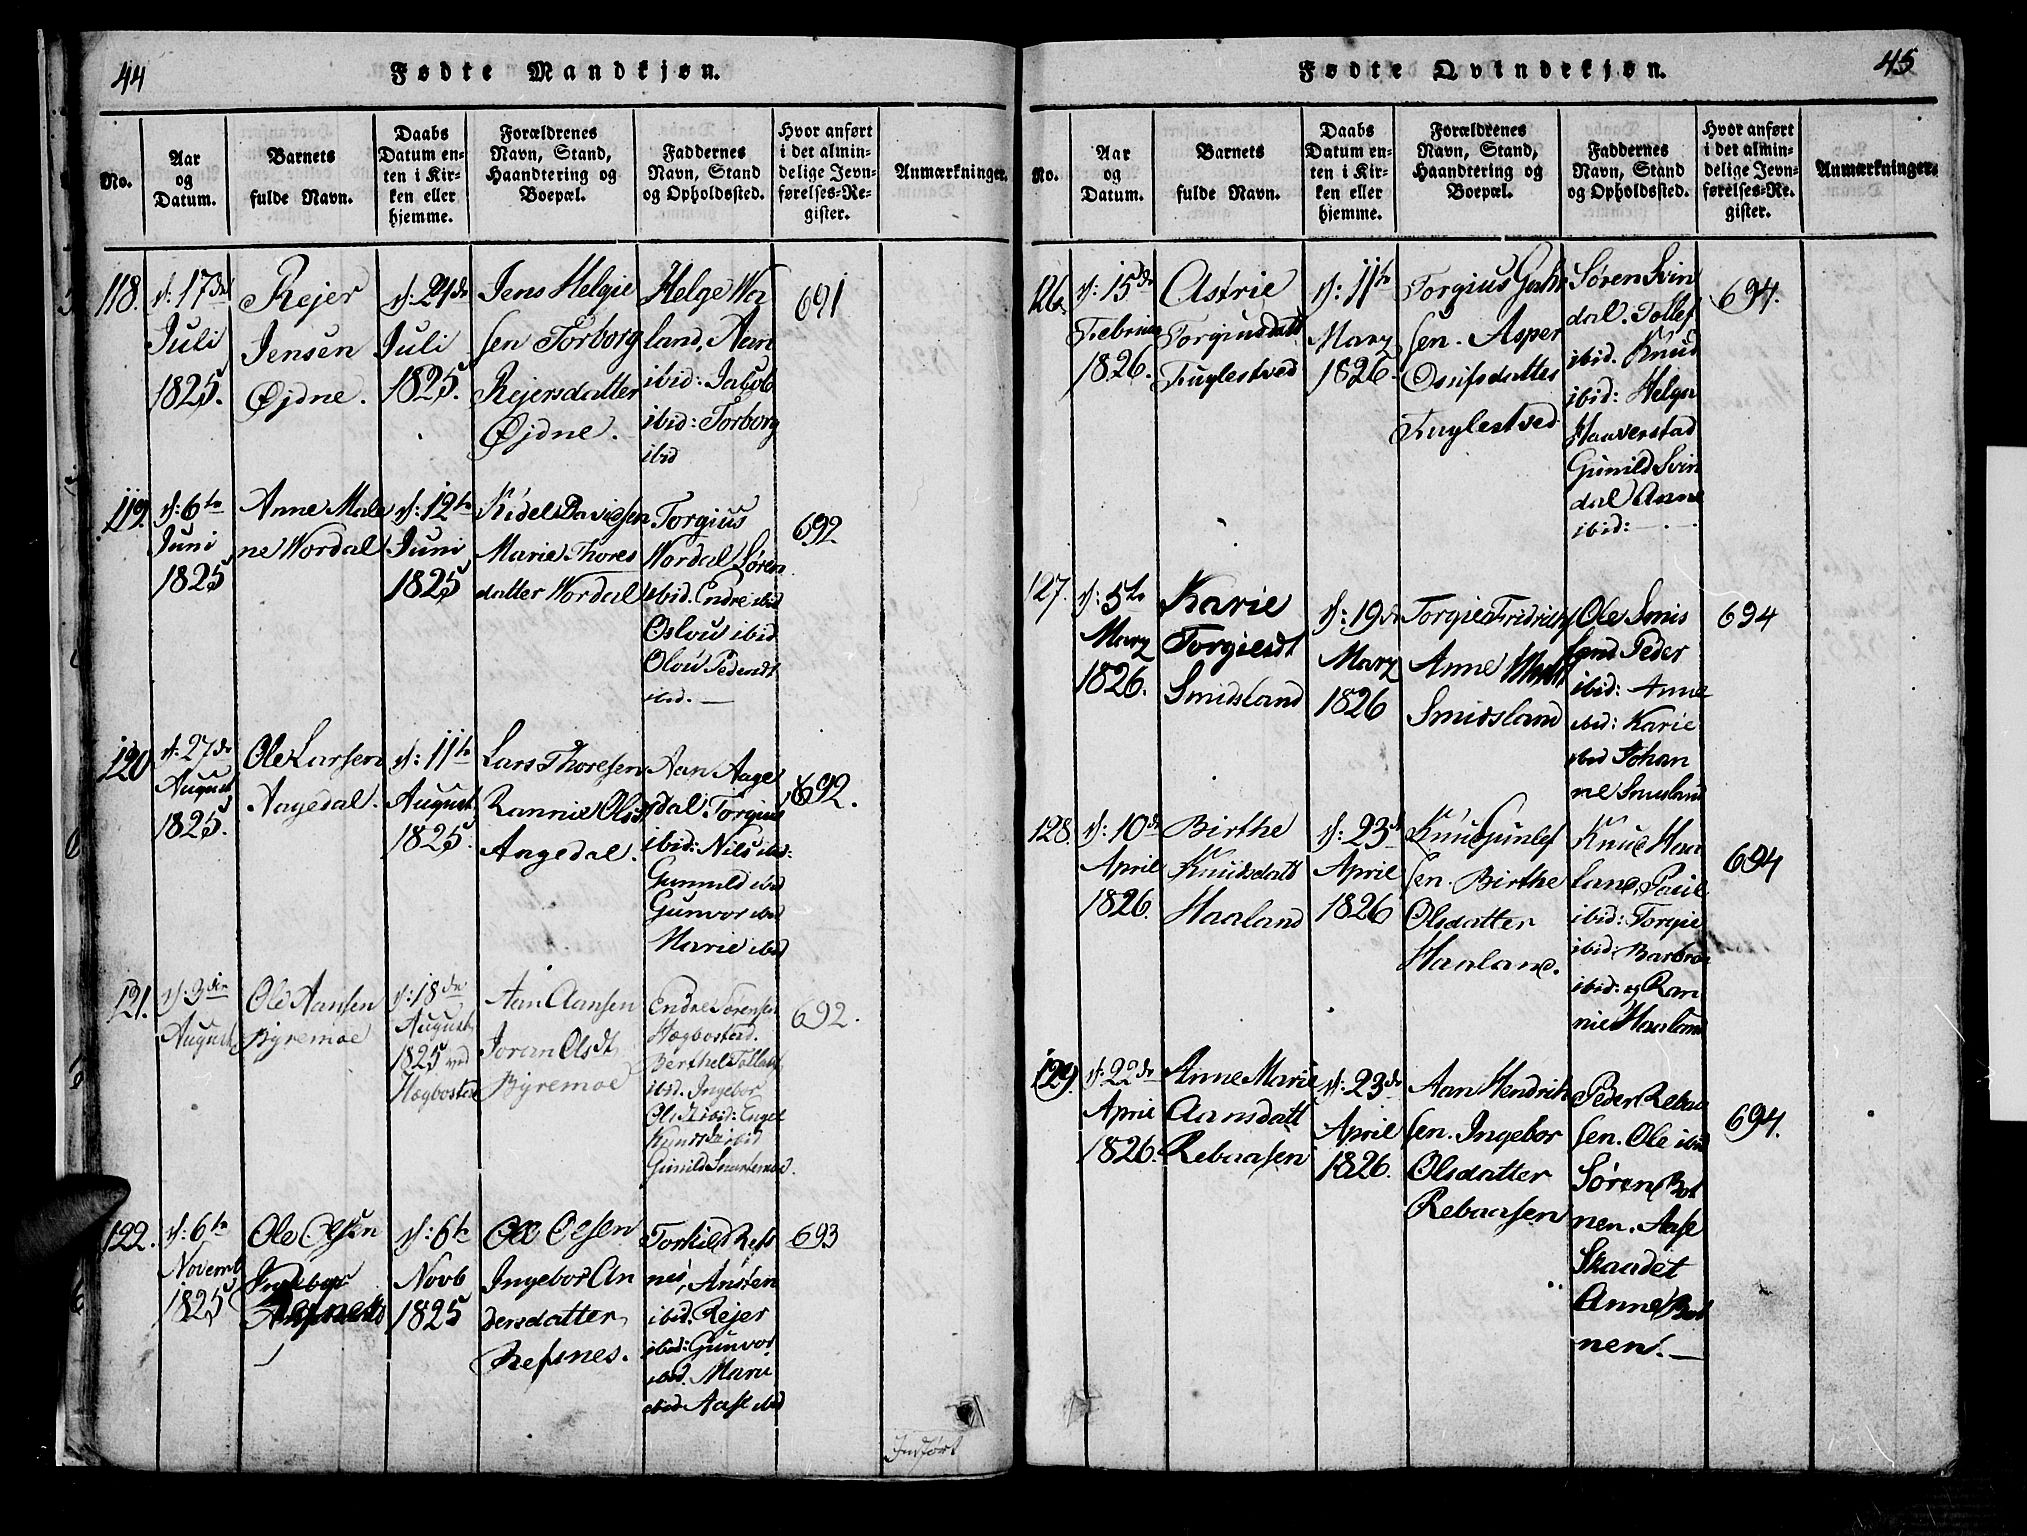 44
Fødte Mandkjøn.
No.
Aar
og
Datum.
Barnets
fulde Navn.
Daabs
Datum en-
ten i Kir-
ken eller
hjemme.
Forældrenes
Navn, Stand,
Haandtering og
Boepæl.
Faddernes
Navn, Stand
og Opholdssted.
Hvor anført
i det almin-
delige Jevn-
førelses-Re-
gister.
Anmærkninger.
118.
d: 17de
Juli
1825.
Rejer
Jensen
Øjdne.
d: 24de
Juli
1825.
Jens Helgie
sen Torborg
Rejersdatter
Øjdne.
Helge Wor
land, Aan
ibid: Jacob
ibid: Torborg
ibid
691
119.
d: 6te
Juni
1825
Anne Male
ne Wordal
d: 12te
Juni
1825
Kidel Davidsen
Marie Thores
datter Wordal
Torgius
Wordal Søren
ibid. Endre ibid
Oslou ibid
Olou Pedersdt
ibid.
692.
120
d: 27de
August
1825.
Ole Larsen
Aagedal.
d: 11te
August
1825.
Lars Thoresen
Rannie Olsd
Aagedal.
Aan Aage
dal Torgius
ibid: Nils ibid:
Gunnild ibid
Gunvor ibid
Marie ibid
692.
121.
d: 3die
August
Ole Aansen
Byremoe
d: 18de
August
1825 ved
Hægbostad
Aan Aansen
Joran Olsdt
Byremoe
Endre Sørensen
Hægbostad.
Berthel Tollaks
ibid. Ingebor
Olsdt ibid: Engel
Knudsdt ibid
Gunild Snartemoe.
692.
122.
d: 6te
Novemb
1825
Ole Olsen
Refsnes
d: 6te
Novb
1825
Ole Olsen
Ingebor An
dersdatter
Refsnes.
Torkild Refs
nes, Ansten
ibid. Rejer
ibid: Gunvor
ibid. Marie
ibid Aase ibid
693
Indført
45
Fødte Qvindekjøn.
No.
Aar
og
Datum.
Barnets
fulde Navn.
Daabs
Datum en-
ten i Kir-
ken eller
hjemme.
Forældrenes
Navn, Stand,
Haandtering og
Boepæl.
Faddernes
Navn, Stand
og Opholdssted.
Hvor anført
i det almin-
delige Jevn-
førelses-Re-
gister.
Anmærkninger.
126.
d: 15de
Februar
1826.
Astrie
Torgiusdatt
Fuglestved
d: 11te
Marz
1826.
Torgius Guh
sen. Asper
Osufsdatter
Fuglestved
Søren Svin
dal. Tollef
ibid. Knud
ibid: Helga
Haaverstad
Gunild Svin
dal Anne
ibid:
694.
127.
d: 5te
Marz
1826.
Karie
Torgiesdt
Smidsland
d: 19de
Marz
1826
Torgie Fridrichs
Anne
Smidsland
Ole Smis
land Peder
ibid: Anne
ibid: Karie
ibid Johan
ne Smisland
694
128.
d: 10de
April
1826.
Birthe
Knudsdatt
Haaland
d: 23de
April
1826
Knud Gunlef
sen. Birthe
Olsdatter
Haaland.
Knud Haa
land, Paul
ibid: Torgie
ibid: Barbroe
ibid: og Ran
nie Haaland
694
129.
d: 22de
April
1826.
Anne Marie
Aansdatt
Rebaasen
d: 23de
April
1826.
Aan Hendrik
sen. Ingebor
Olsdatter
Rebaasen
Peder Rebaa
sen. Ole ibid
Søren Bot
nen. Aase
Skaadet
Anne Bot
nen.
694.